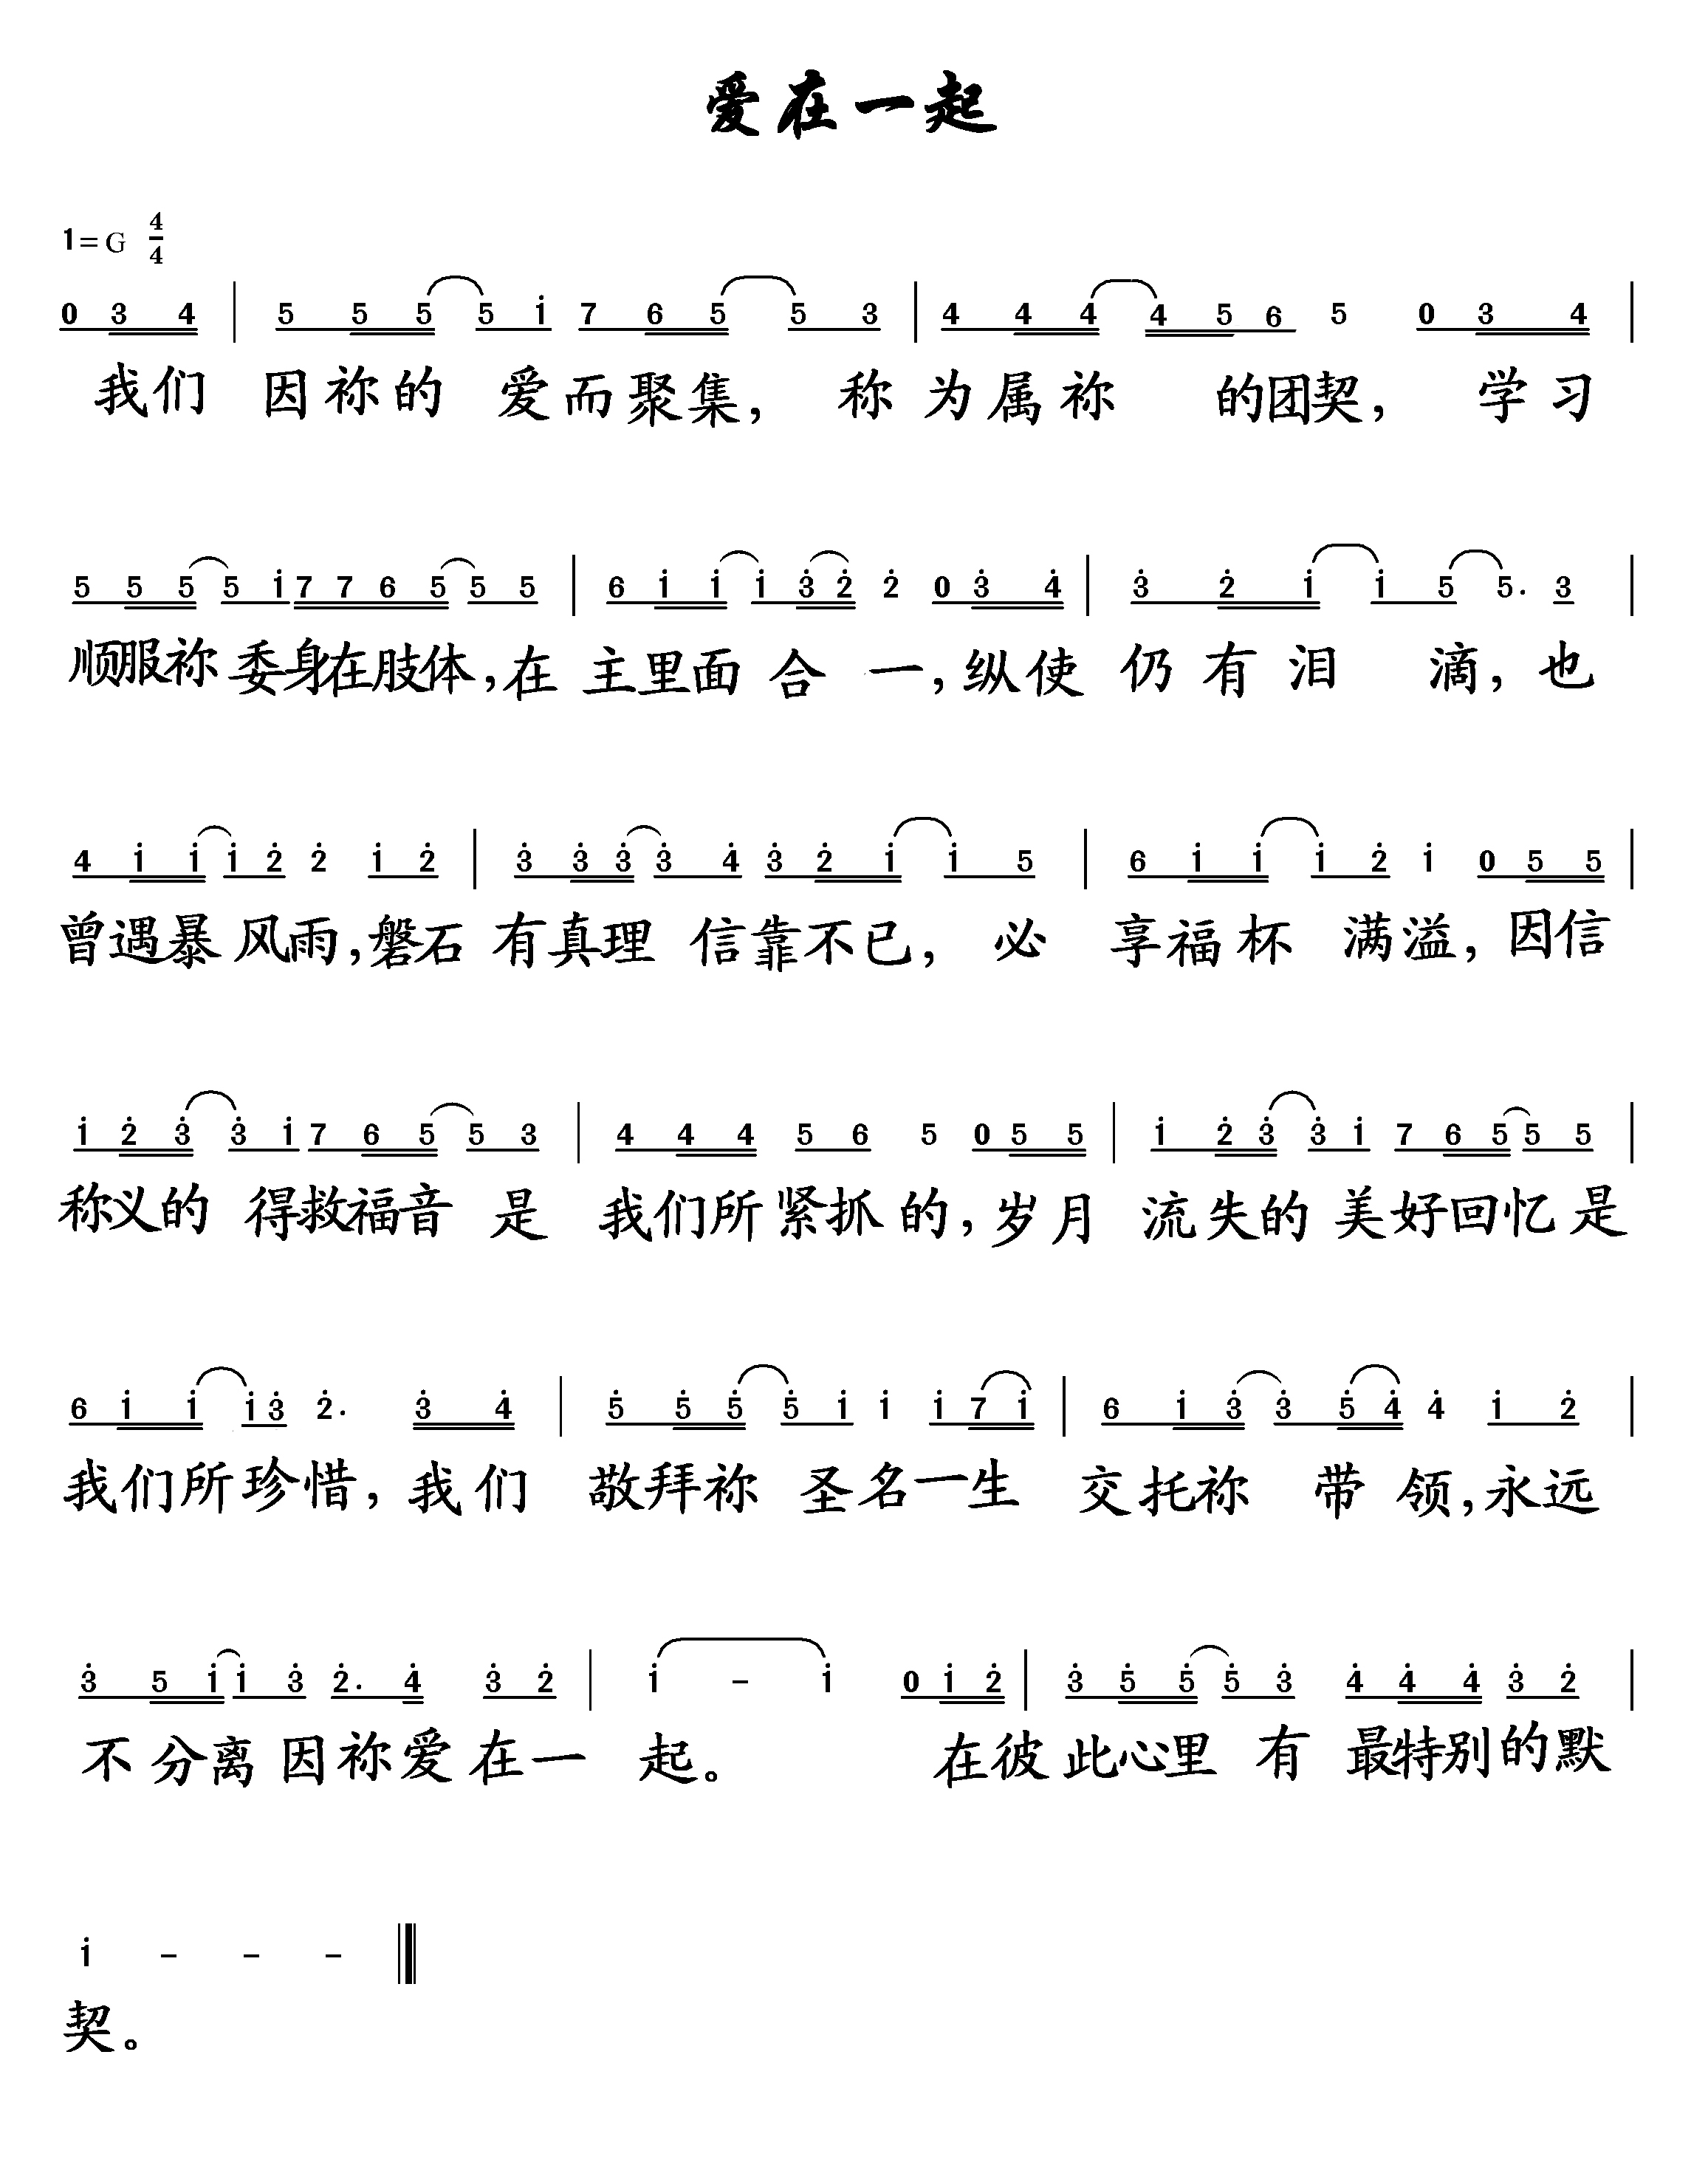 爱在一起
1=G 4/4
0 3 4 | 5 5 5 5 i 7 6 5 5 3 | 4 4 4 4 5 6 5 0 3 4 |
我们 因祢的 爱而聚集, 称为属祢 的团契, 学习
5 5 5 5 i 7 7 6 5 5 5 | 6 i i i 3̇ 2̇ 2̇ 0 3̇ 4̇ | 3̇ 2̇ i i 5 5. 3 |
顺服祢 委身在肢体, 在 主里面 合 一, 纵使 仍有泪 滴, 也
4 i i i 2̇ 2̇ i 2̇ | 3̇ 3̇ 3̇ 3̇ 4̇ 3̇ 2̇ i i 5 | 6 i i i 2̇ i 0 5 5 |
曾遇暴 风雨, 磐石 有真理 信靠不已, 必 享福杯 满溢, 因信
i 2̇ 3̇ 3̇ i 7 6 5 5 3 | 4 4 4 5 6 5 0 5 5 | i 2̇ 3̇ 3̇ i 7 6 5 5 5 |
称义的 得救福音 是 我们所紧抓的, 岁月 流失的 美好回忆是
6 i i i 3̇ 2̇. 3̇ 4̇ | 5̇ 5̇ 5̇ 5̇ i i i 7 i | 6 i 3̇ 3̇ 5̇ 4̇ 4̇ i 2̇ |
我们所珍惜, 我们 敬拜祢 圣名一生 交托祢 带领, 永远
3̇ 5 i i 3̇ 2̇. 4̇ 3̇ 2̇ | i - i 0 i 2̇ | 3̇ 5̇ 5̇ 5̇ 3̇ 4̇ 4̇ 4̇ 3̇ 2̇ |
不分离 因祢爱在一 起。 在彼此心里 有 最特别的默
i - - - ‖
契。